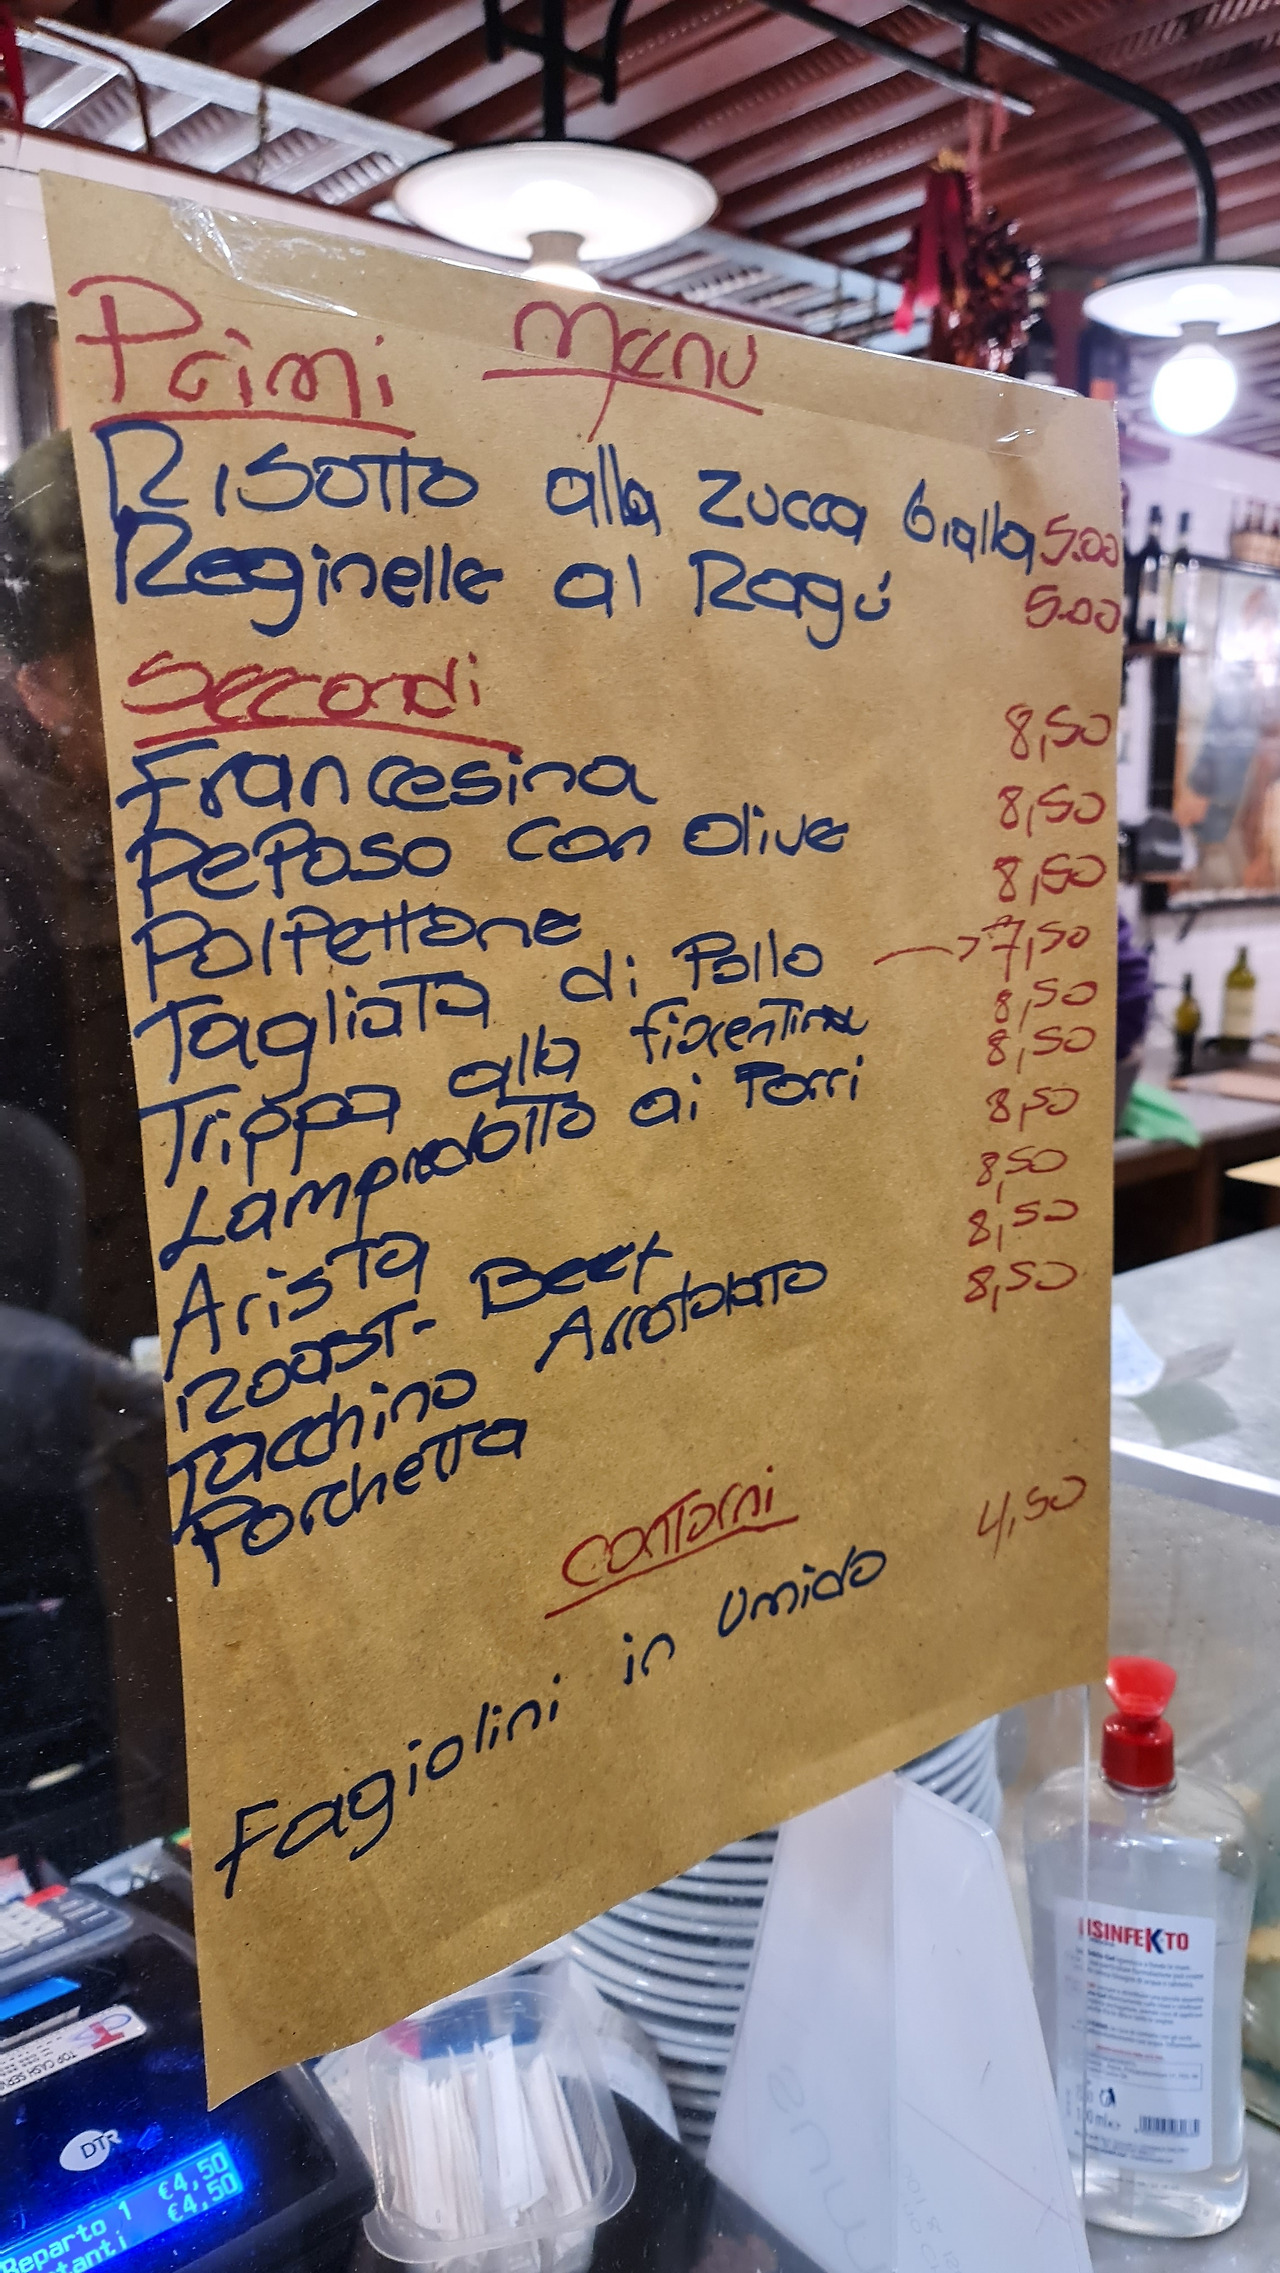 Menu
Primi
Risotto alla Zucca Gialla 5.00
Reginelle al Ragú 5.00
Secondi
Francesina 8,50
Peposo con olive 8,50
Polpettone 8,50
Tagliata di Pollo → 7,50
Trippa alla fiorentina 8,50
Lampredotto ai Porri 8,50
Arista 8,50
Roast-Beef 8,50
Tacchino Arrotolato 8,50
Porchetta 8,50
Contorni
Fagiolini in Umido 4,50
ISINFEKTO
TOP CASH SERV
DTR
Reparto 1 €4,50
tanti €4,50